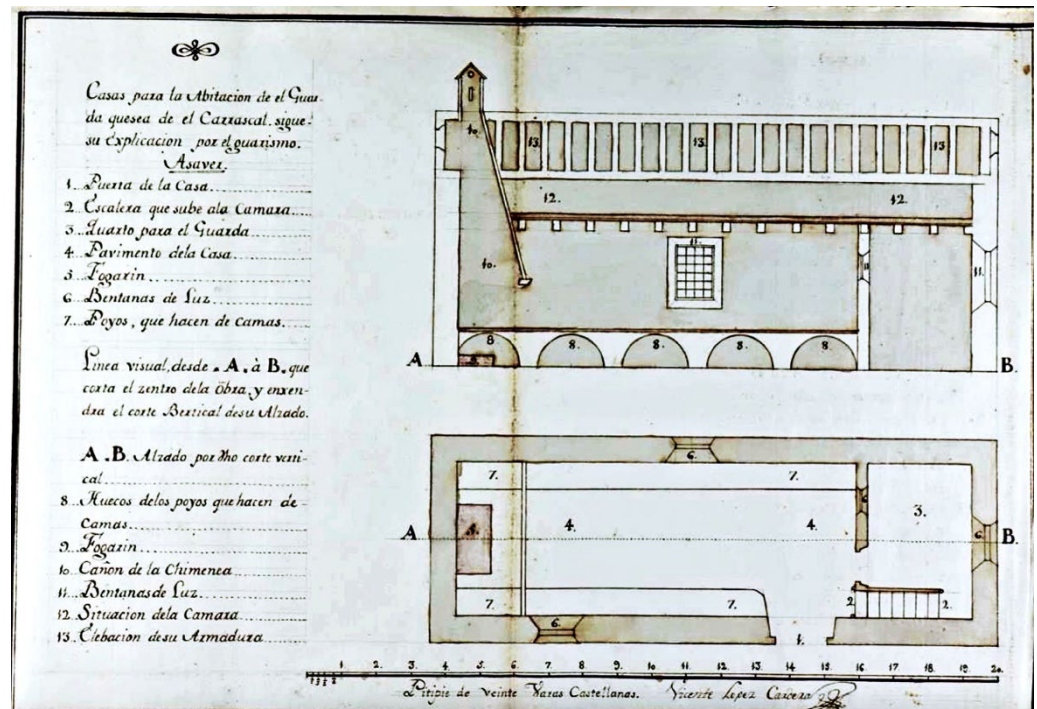 Casas para la Abitacion de el Guar-
da quesea de el Carrascal. sigue.
su Explicacion por el guarismo.
Asaver.
1... Puerta de la Casa
2... Escalera que sube ala Camara
3... Quarto para el Guarda
4... Pavimento dela Casa
5... Fogarin
6... Bentanas de Luz
7... Poyos, que hacen de Camas
Linea visual, desde .A. à B. que
corta el zentro dela Obra, y enxen-
dra el corte Bertical desu Alzado.
A.B. Alzado por dho corte verti-
cal
8... Huecos delos poyos que hacen de
Camas
9... Fogarin
10.. Cañon de la Chimenea
11... Bentanas de Luz
12.. Situacion dela Camara
13.. Elebacion desu Armadura
10. 13. 13. 13
12. 12.
10. 11. 11. 11.
8 8. 8. 8. 8
A B.
6.
7. 7. 6
5. 4. 4. 3.
A 6. B.
7. 7. 2. 2.
6. 1.
1. 2. 3. 4. 5. 6. 7. 8. 9. 10. 11. 12. 13. 14. 15. 16. 17. 18. 19. 20.
Pitipie de veinte Varas Castellanas. Vicente Lopez Carcera